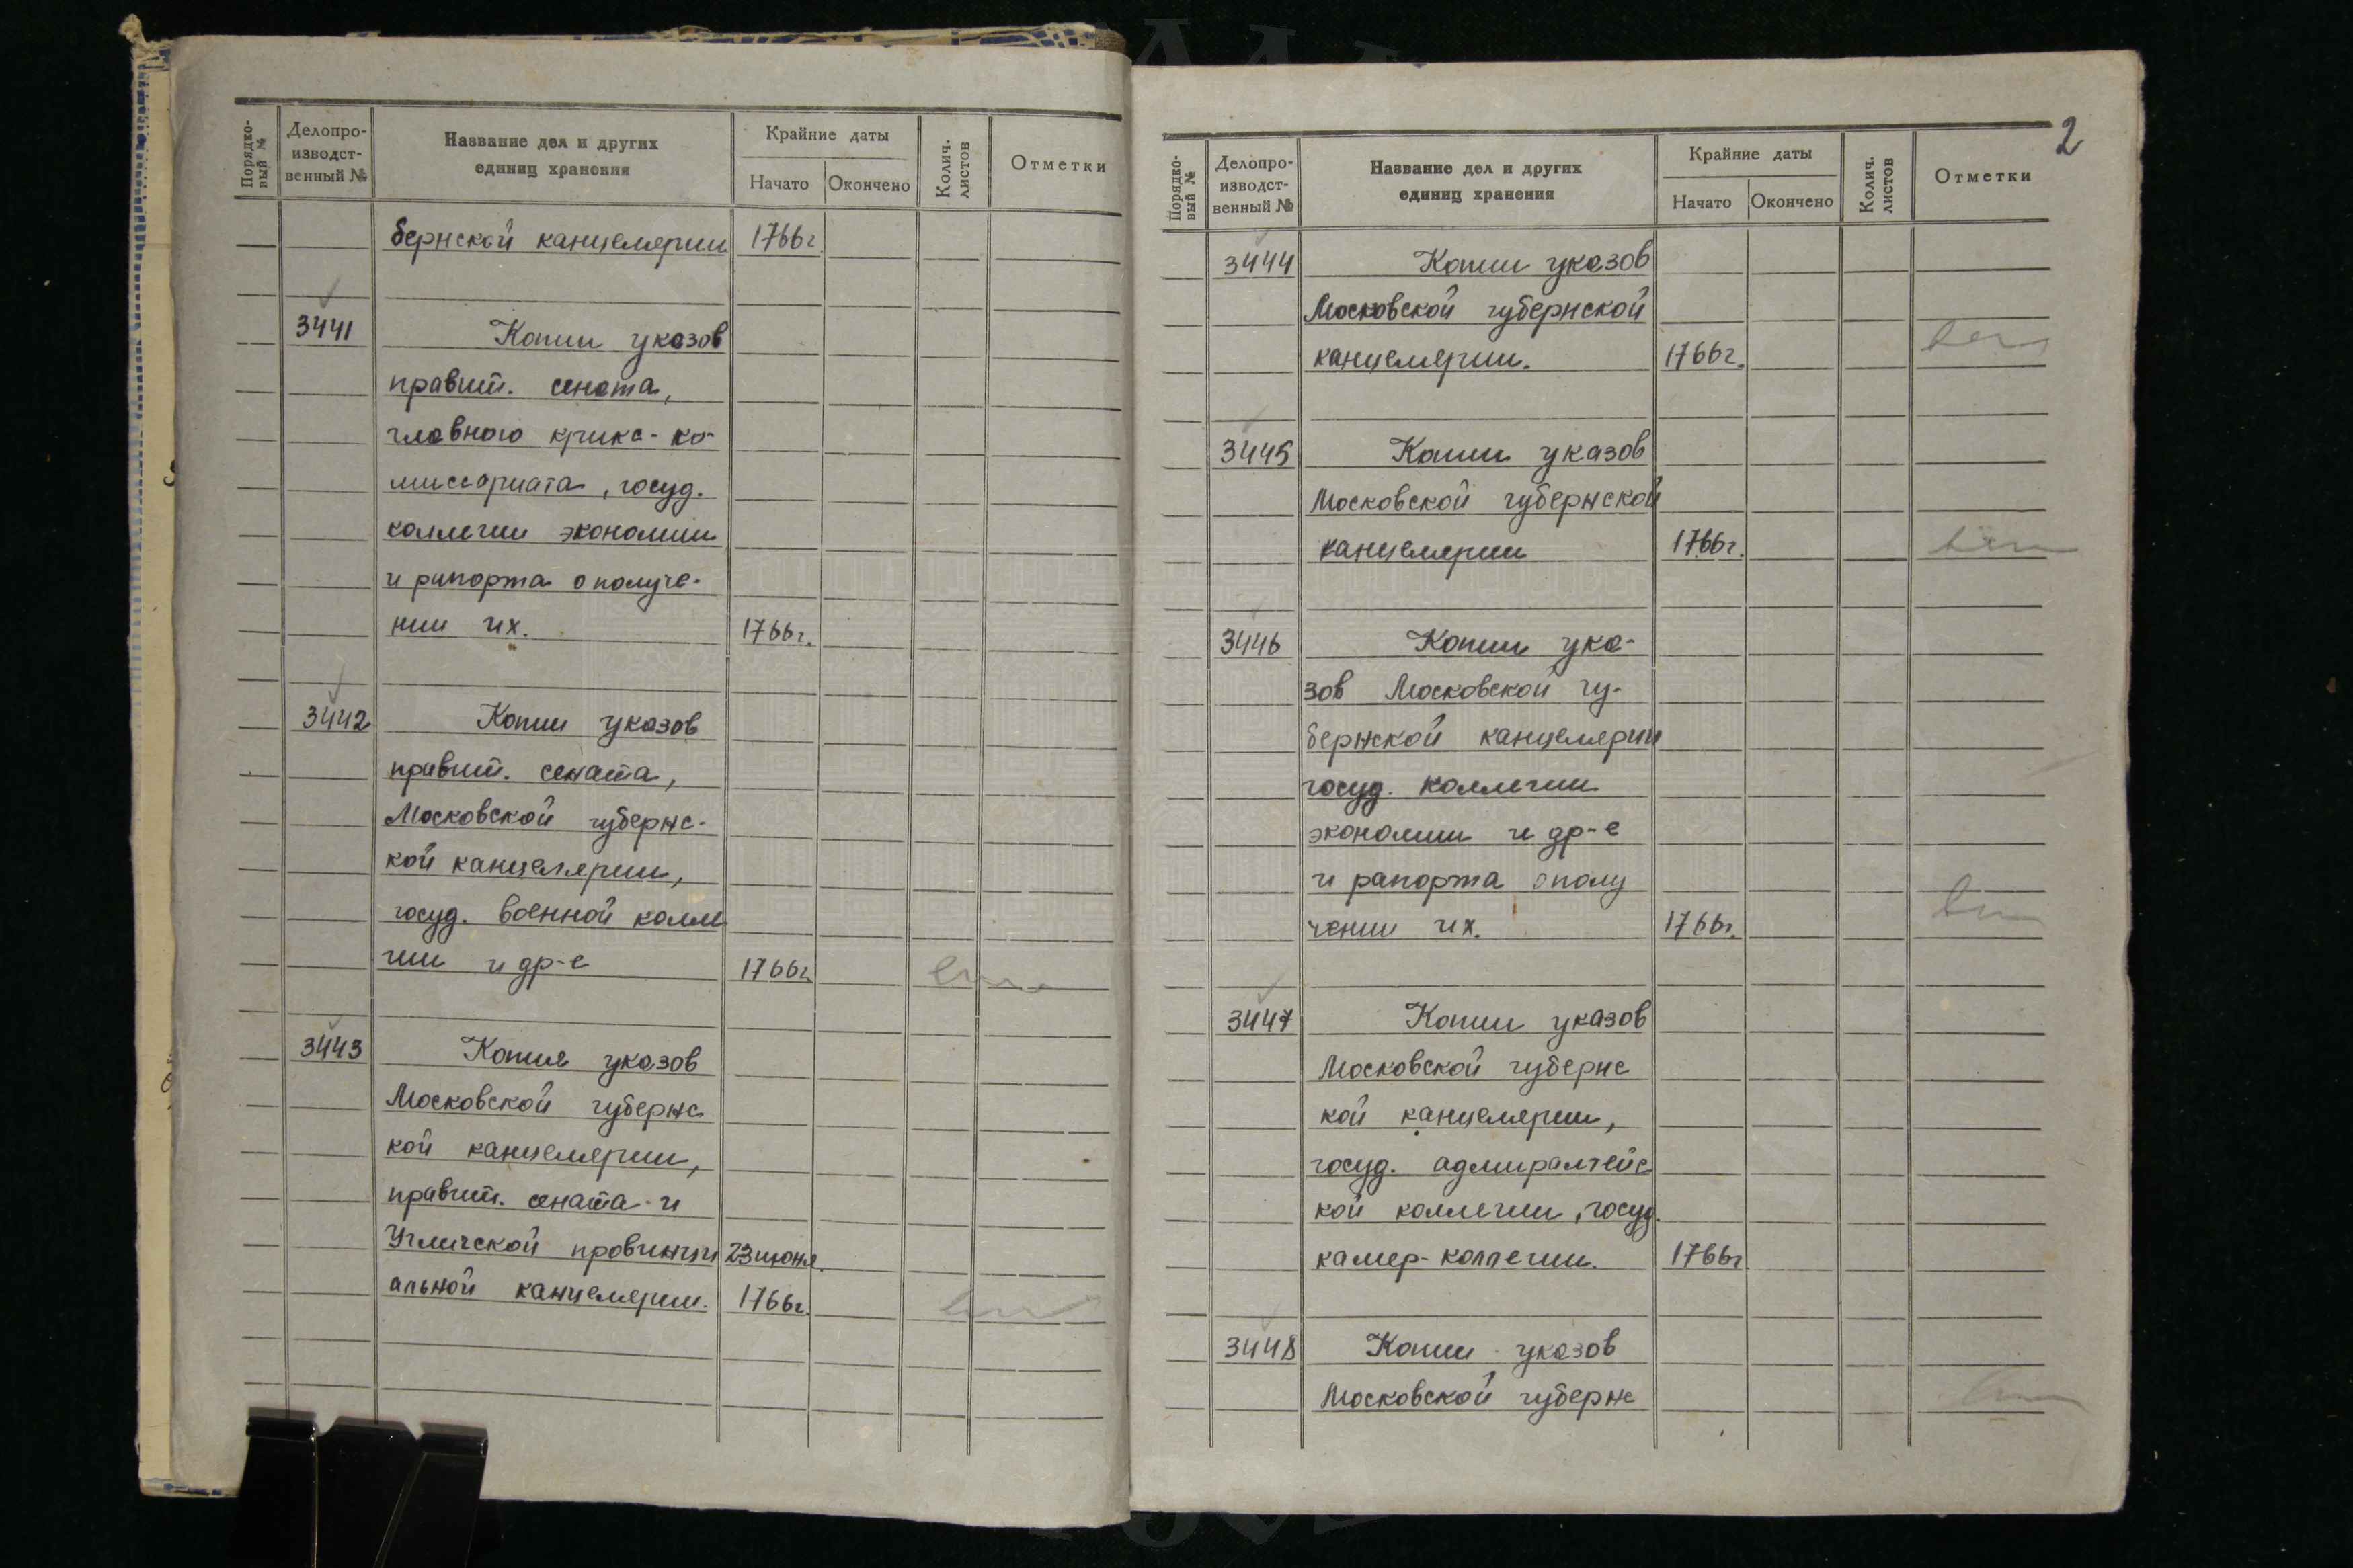 Порядко-
вый №
Делопро-
изводст-
венный №
Название дел и других
единиц хранения
Крайние даты
Начато Окончено
Колич.
листов
Отметки
бернской канцелярии 1766г
3441 Копии указов
правит. сената,
главного крикс-ко-
миссариата, госуд.
коллегии экономии
и рапорта о получе-
нии их. 1766г.
3442 Копии указов
правит. сената,
Московской губернс-
кой канцелярии,
госуд. военной колле
гии и др-е 1766г.
3443 Копия указов
Московской губернс
кой канцелярии,
правит. сената и
Угличской провинци 23 июня
альной канцелярии. 1766г.
2
Порядко-
вый №
Делопро-
изводст-
венный №
Название дел и других
единиц хранения
Крайние даты
Начато Окончено
Колич.
листов
Отметки
3444 Копии указов
Московской губернской
канцелярии. 1766г.
3445 Копии указов
Московской губернской
канцелярии 1766г.
3446 Копии ука-
зов Московской гу-
бернской канцелярии
госуд. коллегии
экономии и др-е
и рапорта о полу
чении их. 1766г.
3447 Копии указов
Московской губернс
кой канцелярии,
госуд. адмиралтейс
кой коллегии, госуд.
камер-коллегии. 1766г
3448 Копии указов
Московской губернс